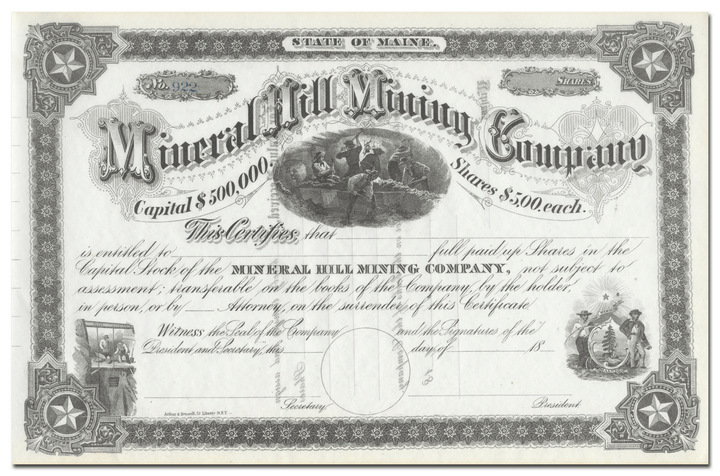 STATE OF MAINE.
No. 922
SHARES
Mineral Hill Mining Company
Capital $500,000. Shares $5.00. each.
This Certifies, that
is entitled to full paid up Shares in the
Capital Stock of the MINERAL HILL MINING COMPANY, not subject to
assessment; transferable, on the books of the Company, by the holder,
in person, or by Attorney, on the surrender, of this Certificate
Witness the Seal of the Company and the Signatures of the
President and Secretary, this day of 18
Secretary. President